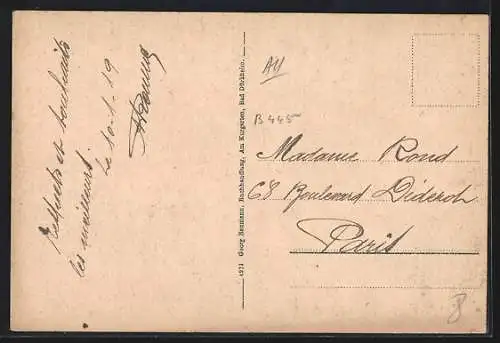 Respects et souhaits
les meilleurs.
Le 10-1-19
4271 Georg Bermann, Buchhandlung, Am Kurgarten, Bad Dürkheim.
All
B 445
Madame Rond
68 Boulevard Diderot
Paris